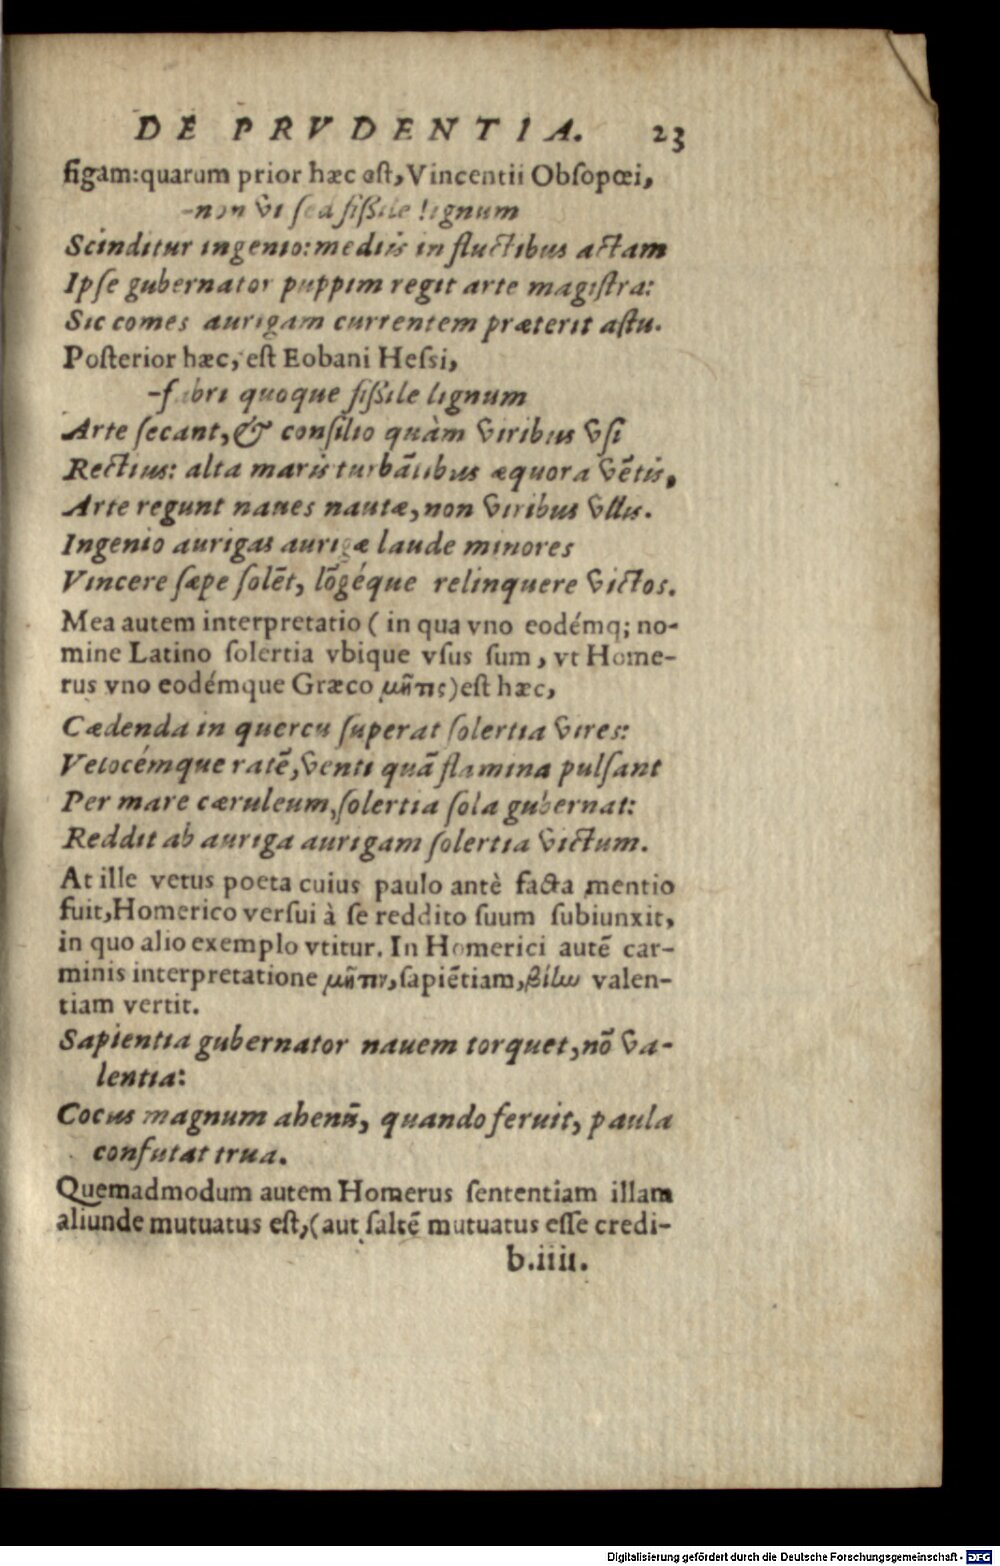 DE PRVDENTIA. 23
figam:quarum prior hæc est,Vincentii Obſopœi,
-non vi ſed fiſsile lignum
Scinditur ingenio:mediis in fluctibus actam
Ipſe gubernator puppim regit arte magiſtra:
Sic comes aurigam currentem præterit aſtu.
Poſterior hæc, eſt Eobani Heſsi,
-fabri quoque fiſsile lignum
Arte ſecant,& conſilio quàm viribus vſi
Rectius: alta maris turbātibus æquora vētis,
Arte regunt naues nautæ,non viribus vllis.
Ingenio aurigas aurigæ laude minores
Vincere ſæpe ſolēt, lōgéque relinquere victos.
Mea autem interpretatio ( in qua vno eodémq; no-
mine Latino ſolertia vbique vſus ſum , vt Home-
rus vno eodémque Græco μῆτις) eſt hæc,
Cædenda in quercu ſuperat ſolertia vires:
Velocémque ratē,venti quā flamina pulſant
Per mare cæruleum,ſolertia ſola gubernat:
Reddit ab auriga aurigam ſolertia victum.
At ille vetus poeta cuius paulo antè facta mentio
fuit,Homerico verſui à ſe reddito ſuum ſubiunxit,
in quo alio exemplo vtitur. In Homerici autē car-
minis interpretatione μῆτιν,ſapiētiam,βίlω valen-
tiam vertit.
Sapientia gubernator nauem torquet,nō va-
lentia:
Cocus magnum ahenū, quando feruit, paula
confutat trua.
Quemadmodum autem Homerus ſententiam illam
aliunde mutuatus eſt,(aut ſaltē mutuatus eſſe credi-
b.iiii.
Digitalisierung gefördert durch die Deutsche Forschungsgemeinschaft - DFG